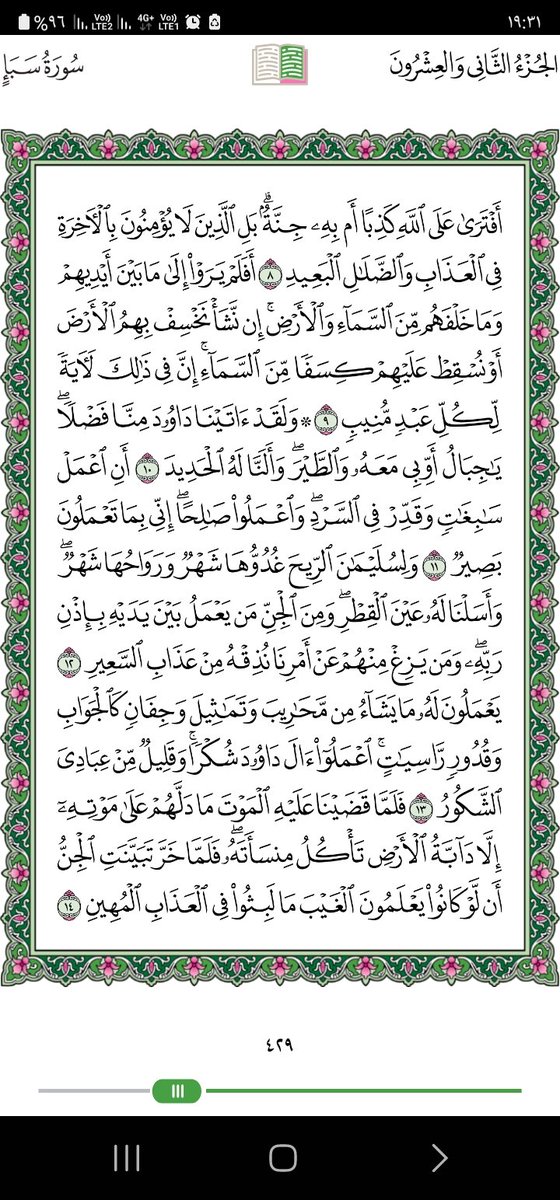 %٩٦ Vo)) LTE2 4G+ Vo)) LTE1 ١٩:٣١
الجُزْءُ الثَّانِي وَالعِشْرُونَ سُورَةُ سَبَإٍ
أَفْتَرَىٰ عَلَى ٱللَّهِ كَذِبًا أَم بِهِۦ جِنَّةٌۗ بَلِ ٱلَّذِينَ لَا يُؤْمِنُونَ بِٱلْأَخِرَةِ
فِي ٱلْعَذَابِ وَٱلضَّلَٰلِ ٱلْبَعِيدِ ٨ أَفَلَمْ يَرَوْاْ إِلَىٰ مَا بَيْنَ أَيْدِيهِمْ
وَمَا خَلْفَهُم مِّنَ ٱلسَّمَآءِ وَٱلْأَرْضِۚ إِن نَّشَأْ نَخْسِفْ بِهِمُ ٱلْأَرْضَ
أَوْ نُسْقِطْ عَلَيْهِمْ كِسَفًا مِّنَ ٱلسَّمَآءِۚ إِنَّ فِي ذَٰلِكَ لَأٓيَةً
لِّكُلِّ عَبْدٍ مُّنِيبٍ ٩ ۞ وَلَقَدْ ءَاتَيْنَا دَاوُۥدَ مِنَّا فَضْلًاۖ
يَٰجِبَالُ أَوِّبِي مَعَهُۥ وَٱلطَّيْرَۖ وَأَلَنَّا لَهُ ٱلْحَدِيدَ ١٠ أَنِ ٱعْمَلْ
سَٰبِغَٰتٍ وَقَدِّرْ فِي ٱلسَّرْدِۖ وَٱعْمَلُواْ صَٰلِحًاۖ إِنِّي بِمَا تَعْمَلُونَ
بَصِيرٌ ١١ وَلِسُلَيْمَٰنَ ٱلرِّيحَ غُدُوُّهَا شَهْرٌ وَرَوَاحُهَا شَهْرٌۖ
وَأَسَلْنَا لَهُۥ عَيْنَ ٱلْقِطْرِۖ وَمِنَ ٱلْجِنِّ مَن يَعْمَلُ بَيْنَ يَدَيْهِ بِإِذْنِ
رَبِّهِۦۖ وَمَن يَزِغْ مِنْهُمْ عَنْ أَمْرِنَا نُذِقْهُ مِنْ عَذَابِ ٱلسَّعِيرِ ١٢
يَعْمَلُونَ لَهُۥ مَا يَشَآءُ مِن مَّحَٰرِيبَ وَتَمَٰثِيلَ وَجِفَانٍ كَٱلْجَوَابِ
وَقُدُورٍ رَّاسِيَٰتٍۚ ٱعْمَلُوٓاْ ءَالَ دَاوُۥدَ شُكْرًاۚ وَقَلِيلٌ مِّنْ عِبَادِيَ
ٱلشَّكُورُ ١٣ فَلَمَّا قَضَيْنَا عَلَيْهِ ٱلْمَوْتَ مَا دَلَّهُمْ عَلَىٰ مَوْتِهِۦٓ
إِلَّا دَآبَّةُ ٱلْأَرْضِ تَأْكُلُ مِنسَأَتَهُۥۖ فَلَمَّا خَرَّ تَبَيَّنَتِ ٱلْجِنُّ
أَن لَّوْ كَانُواْ يَعْلَمُونَ ٱلْغَيْبَ مَا لَبِثُواْ فِي ٱلْعَذَابِ ٱلْمُهِينِ ١٤
٤٢٩